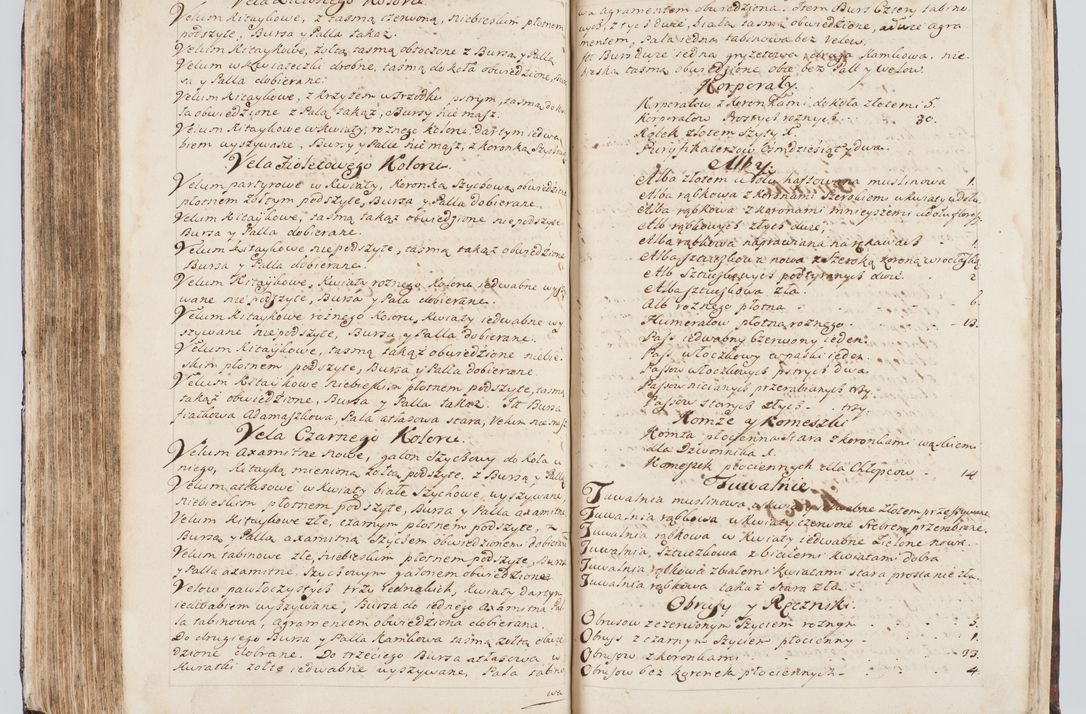 Vela Zielonego Koloru
Velum Kitaykowe, z tasmą czerwoną, niebieskim płotnem
podszyte, Bursa y Palla takaż.
Velum Kitaykowe, żołtą tasmą obtoczone z Bursą y Pallą
Velum w Kwiateczki drobne, tasmą do koła obwiedzione, Bur
sa y Palla dobierane.
Velum Kitaykowe, z krzyżem w srzodku pstrym, tasmą do ko
ła obwiedzione z Palą takąż, Bursy nie masz.
Velum Kitaykowe w Kwiaty, roznego koloru, Dartym iedwa
biem wyszywane, Bursy y Palle nie masz, z koronką Szychową
Vela Fioletowego Koloru.
Velum partyrowe w Kwiaty, Koronka Szychowa, obwiedzione
płotnem żołtym podszyte, Bursa y Palla dobierane.
Velum Kitaykowe, tasmą takąż obwiedzione nie podszyte
Bursa y Palla dobierane.
Velum Kitaykowe nie podszyte, tasmą takąż obwiedzione
Bursa y Palla dobierane.
Velum Kitaykowe, Kwiaty roznego Koloru iedwabne wyszy
wane nie podszyte, Bursa y Pala dobierane.
Velum Kitaykowe roznego Koloru, Kwiaty iedwabne wy
szywane nie podszyte, Bursa y Palla dobierane.
Velum Kitaykowe, tasmą takąż obwiedzione niebie
skim płotnem podszyte, Bursa y Palla dobierane.
Velum Kitaykowe niebieskim płotnem podszyte, tasmą
takąż obwiedzione, Bursa y Palla takaż. It Bursa
Adamaszkowa, Pala atłasowa stara, Velum nie masz
Vela Czarnego Koloru.
Velum Axamitne nowe, galon Szychowy do koła u
niego, Kitayką mienioną żołtą podszyte, z Bursą y Pallą
Velum atłasowe w kwiaty białe Szychowe, wyszywane,
niebieskim płotnem podszyte, Bursa y Palla axamitna
Velum Kitaykowe złe, czarnym płotnem podszyte, z
Bursą y Pallą axamitną Szychem obwiedzionem dobierane
Velum tabinowe złe, niebieskim płotnem podszyte, Bursa
y Palla axamitne, Szychowym galonem obwiedzione
Velow pawłoczystych trzy iednakich, Kwiaty Dartym
iedwabiem wyszywane, Bursa do iednego Axamitna Pal
la tabinowa, agramentem obwiedziona dobierana.
Do drugiego Bursa y Palla Kamlowa tasmą żołtą obwie
dzione dobrane. Do trzeciego Bursa atłasowa w
Kwiatki żołte iedwabne wyszywane, Pala tabino
wa
wa agramentem obwiedziona. Item Burs Cztery tabino
wych, z tych dwie, białą tasmą obwiedzione, a dwie agra
mentem, Pala iedna tabinowa bez Velow.
It Burs dwie iedna gryzetowa, druga Kamlowa, nie
bieską tasmą obwiedzione obie bez Pall y welow.
Korporały.
Korporałow z koronkami, do koła złotemi 5.
Korporałow Prostych roznych 30.
Kołek złotem Szyty X.
Puryfikaterzow Ośmdziesiąt y dwa.
Alby.
Alba złotem u dołu haftowana muslinowa 1.
Alba rąbkowa z koronami szerokiem w kwiaty u dołu 1
Alba rąbkowa z koronami mnieyszemi u dołu
Alb rąbkowych złych dwie,
Alba rąbkowa naprawiana na rękawach 1.
Alba sztuczkowa nowa z Szeroką koroną wrocławską
Alb Sztuczkowych podszywanych dwie 2
Alba sztuczkowa zła.
Alb roznego płotna - - - 6.
Humerałow płotna roznego - - - 13.
Pas iedwabny Czerwony ieden.
Pas włoczkowy w paski ieden.
Pasow włoczkowych pstrych dwa.
Pasow nicianych przerabianych trzy.
Pasow starych złych - trzy.
Komże y Komeszki
Komża płocienna stara z koronkami wązkiemi
dla Dzwonnika X.
Komeżek płociennych dla Chłopcow - 14
Tuwalnie.
Tuwalnia muslinowa, w kwiaty iedwabne złotem przeszywane,
Tuwalnia rąbkowa w kwiaty czerwone srebrem przerabiane
Tuwalnia rąbkowa w Kwiaty iedwabne Zielone nowa.
Tuwalnia, Sztuczkowa z białemi kwiatami dobra
Tuwalnia rąbkowa z białemi Kwiatami stara prosta nie zła.
Tuwalnia rąbkowa takaż stara zła.
Obrusy y Ręczniki.
Obrusow z czerwonym Szyciem roznym - 3.
Obrus z czarnym szyciem płocienny - 1.
Obrusow z koronkami - 13.
Obrusow bez koronek płociennych - 4.